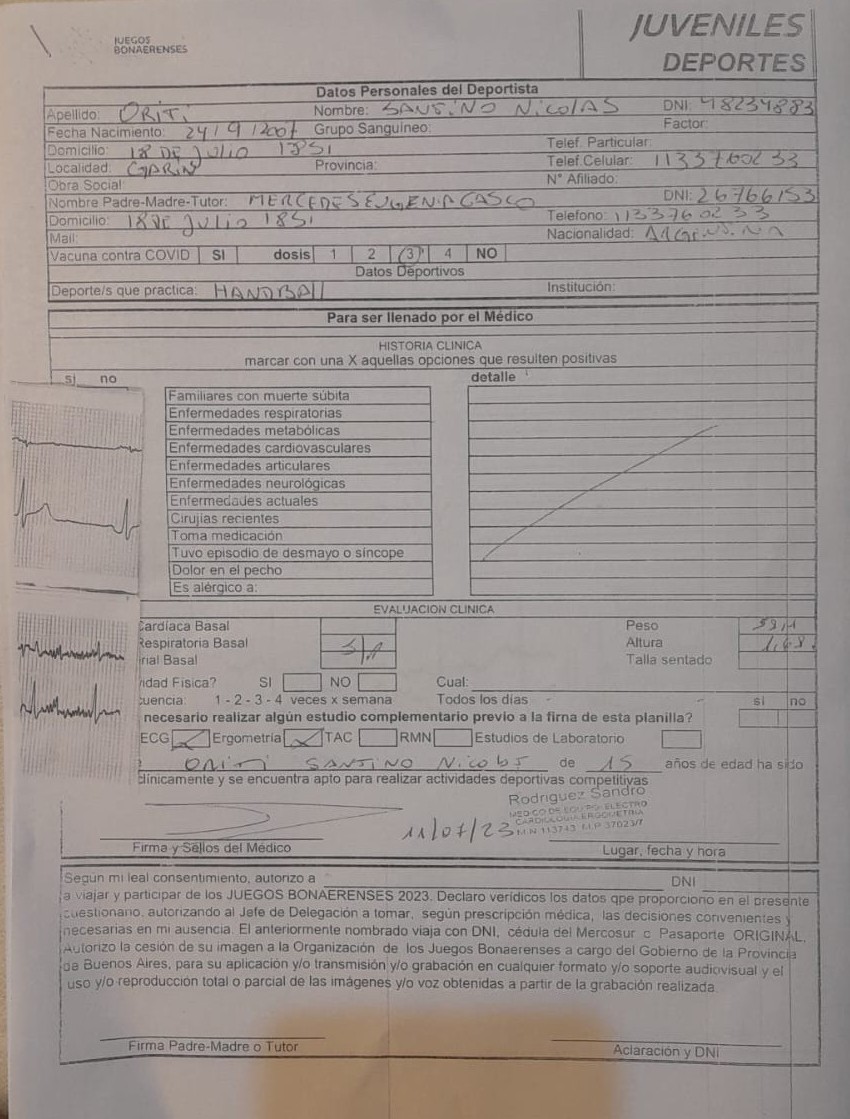 JUEGOS
BONAERENSES
JUVENILES
DEPORTES
Datos Personales del Deportista
Apellido: ORITI Nombre: SANTINO NicolAS DNI: 48234883
Fecha Nacimiento: 24/9/2007 Grupo Sanguineo: Factor:
Domicilio: 18 DE JULIO 1851 Telef. Particular:
Localidad: GARIN Provincia: Telef.Celular: 1133760233
Obra Social: N° Afiliado:
Nombre Padre-Madre-Tutor: MERCEDES EUGENIA GASCO DNI: 26766153
Domicilio: 18 DE JULIO 1851 Telefono: 1133760233
Mail: Nacionalidad: ARGENTINA
Vacuna contra COVID SI dosis 1 2 3 4 NO
Datos Deportivos
Deporte/s que practica: HANDBAll Institución:
Para ser llenado por el Médico
HISTORIA CLINICA
marcar con una X aquellas opciones que resulten positivas
si no detalle
Familiares con muerte súbita
Enfermedades respiratorias
Enfermedades metabólicas
Enfermedades cardiovasculares
Enfermedades articulares
Enfermedades neurológicas
Enfermedades actuales
Cirujías recientes
Toma medicación
Tuvo episodio de desmayo o síncope
Dolor en el pecho
Es alérgico a:
EVALUACION CLINICA
Cardíaca Basal Peso
Respiratoria Basal Altura 1,68
rial Basal Talla sentado
idad Física? SI NO Cual:
uencia: 1 - 2 - 3 - 4 veces x semana Todos los días si no
necesario realizar algún estudio complementario previo a la firma de esta planilla?
ECG Ergometría TAC RMN Estudios de Laboratorio
ORITI SANTINO de 15 años de edad ha sido
clínicamente y se encuentra apto para realizar actividades deportivas competitivas
Rodriguez Sandro
MEDICO DE EQUIPO ELECTRO
CARDIOLOGIA ERGOMETRIA
11/07/23 M.N 113743 M.P 37023/7
Firma y Sellos del Médico Lugar, fecha y hora
Según mi leal consentimiento, autorizo a DNI
a viajar y participar de los JUEGOS BONAERENSES 2023. Declaro verídicos los datos qpe proporciono en el presente
cuestionario, autorizando al Jefe de Delegación a tomar, según prescripción médica, las decisiones convenientes y
necesarias en mi ausencia. El anteriormente nombrado viaja con DNI, cédula del Mercosur c Pasaporte ORIGINAL,
Autorizo la cesión de su imagen a la Organización de los Juegos Bonaerenses a cargo del Gobierno de la Provincia
de Buenos Aires, para su aplicación y/o transmisión y/o grabación en cualquier formato y/o soporte audiovisual y el
uso y/o reproducción total o parcial de las imágenes y/o voz obtenidas a partir de la grabación realizada
Firma Padre-Madre o Tutor Aclaración y DNI